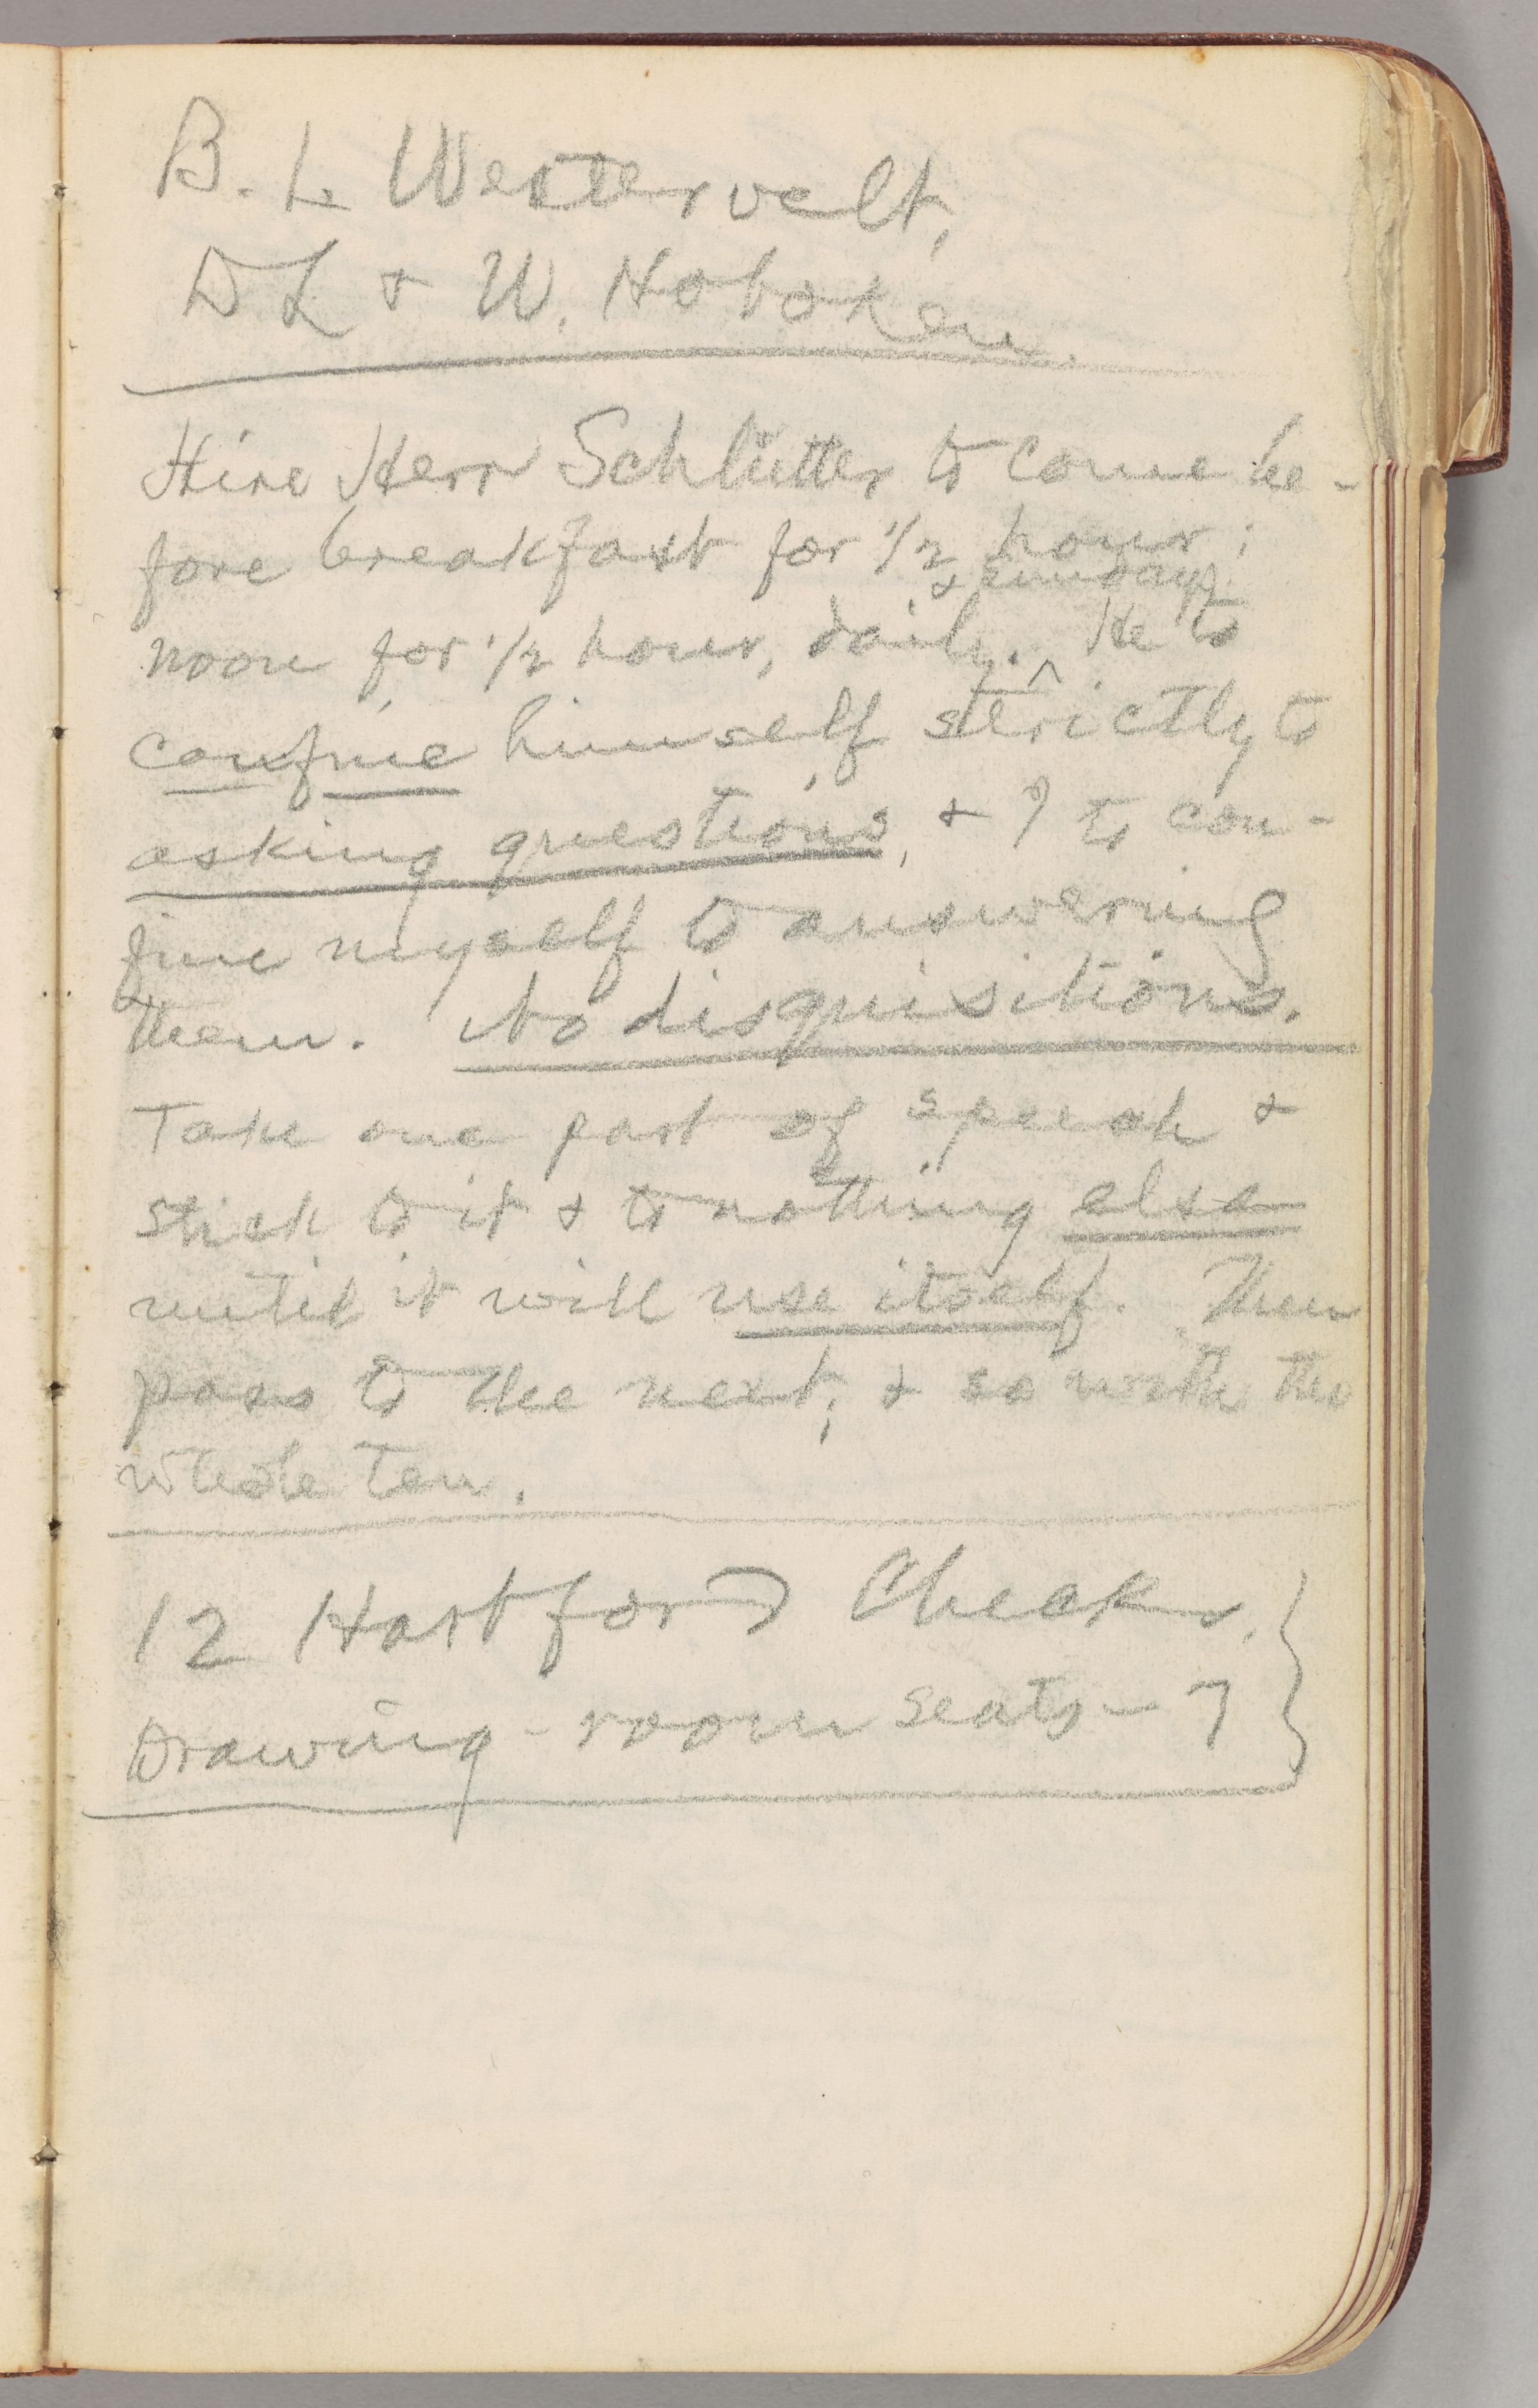 B. L. Westervelt,
D L & W. Hoboken.
Hire Herr Schlütter to come be-
fore breakfast for 1/2 hour;
& Sundays
noon for 1/2 hour, daily. ^ He to
confine himself strictly to
asking questions, & I to con-
fine myself to answering
them. No disquisitions.
Take one part of speech &
stick to it & to nothing else
until it will use itself. Then
pass to the next; & so with the
whole ten.
12 Hartford Checks.
Drawing-room seats — 7